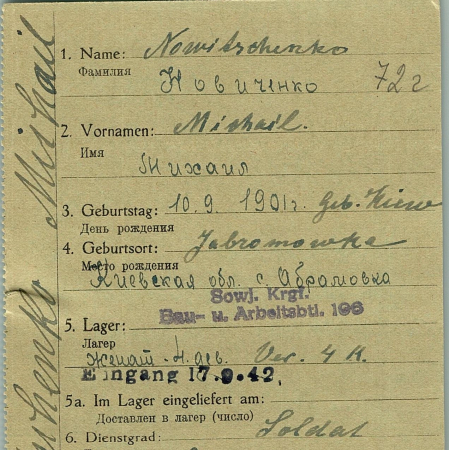 1. Name: Nowitschenko
Фамилия Новиченко 72г
2. Vornamen: Michail.
Имя
Михаил
3. Geburtstag: 10.9.1901г. Geb. Kiew
День рождения
4. Geburtsort: Jabromowka
Место рождения
Киевская обл. с. Абрамовка
Sowj. Krgf.
Bau- u. Arbeitsbtl. 196
5. Lager:
Лагерь
женат. Ver. 4 K.
Eingang 17.9.42.
5a. Im Lager eingeliefert am:
Доставлен в лагер (число)
6. Dienstgrad: Soldat
Michail